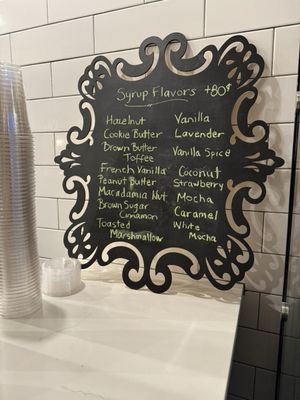 Syrup Flavors +80¢
Hazelnut
Cookie Butter
Brown Butter
Toffee
French Vanilla
Peanut Butter
Macadamia Nut
Brown Sugar
Cinnamon
Toasted
Marshmallow
Vanilla
Lavender
Vanilla Spice
Coconut
Strawberry
Mocha
Caramel
White
Mocha